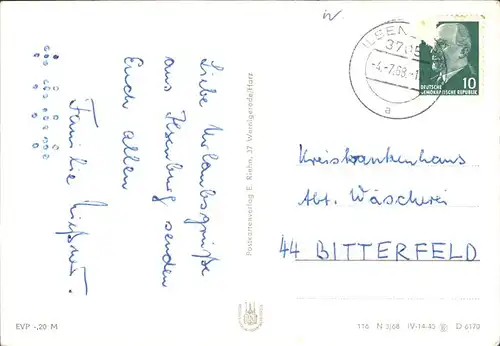 Liebe Urlaubsgrüße
aus Ilsenburg senden
Euch allen
Familie
Postkartenverlag E. Riehn, 37 Wernigerode/Harz
ILSEN
3705
-4.-7.68.-1
a
DEUTSCHE
DEMOKRATISCHE REPUBLIK
10
Kreiskrankenhaus
Abt. Wäscherei
44 BITTERFELD
EVP -,20 M
116 N 3/68 IV-14-45 D 6170